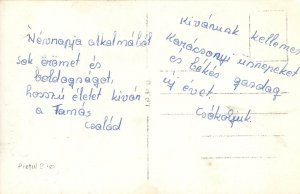 Névnapja alkalmából
sok örömet és
boldogságot,
hosszú életet kíván
a Tamás
család
Kívánunk kellemes
Karácsonyi ünnepeket
és békés gazdag
új évet
Csókoljuk